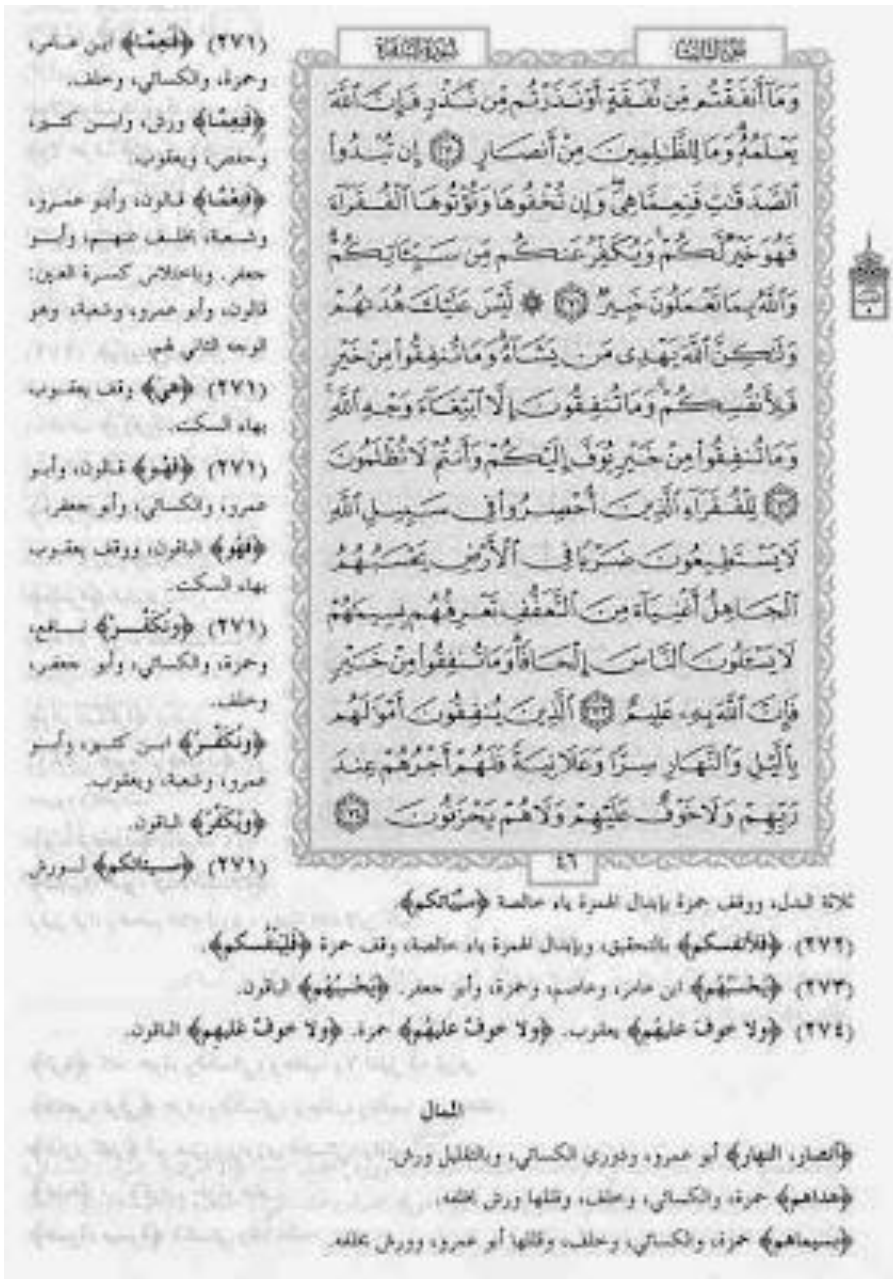 الجزء الثالث
سورة البقرة
وَمَآ أَنفَقْتُم مِّن نَّفَقَةٍ أَوْ نَذَرْتُم مِّن نَّذْرٍ فَإِنَّ ٱللَّهَ
يَعْلَمُهُۥ وَمَا لِلظَّٰلِمِينَ مِنْ أَنصَارٍ ٢٧٠ إِن تُبْدُوا۟
ٱلصَّدَقَٰتِ فَنِعِمَّا هِىَ وَإِن تُخْفُوهَا وَتُؤْتُوهَا ٱلْفُقَرَآءَ
فَهُوَ خَيْرٌ لَّكُمْ وَيُكَفِّرُ عَنكُم مِّن سَيِّـَٔاتِكُمْ
وَٱللَّهُ بِمَا تَعْمَلُونَ خَبِيرٌ ٢٧١ ۞ لَّيْسَ عَلَيْكَ هُدَىٰهُمْ
وَلَٰكِنَّ ٱللَّهَ يَهْدِى مَن يَشَآءُ وَمَا تُنفِقُوا۟ مِنْ خَيْرٍ
فَلِأَنفُسِكُمْ وَمَا تُنفِقُونَ إِلَّا ٱبْتِغَآءَ وَجْهِ ٱللَّهِ
وَمَا تُنفِقُوا۟ مِنْ خَيْرٍ يُوَفَّ إِلَيْكُمْ وَأَنتُمْ لَا تُظْلَمُونَ
٢٧٢ لِلْفُقَرَآءِ ٱلَّذِينَ أُحْصِرُوا۟ فِى سَبِيلِ ٱللَّهِ
لَا يَسْتَطِيعُونَ ضَرْبًا فِى ٱلْأَرْضِ يَحْسَبُهُمُ
ٱلْجَاهِلُ أَغْنِيَآءَ مِنَ ٱلتَّعَفُّفِ تَعْرِفُهُم بِسِيمَٰهُمْ
لَا يَسْـَٔلُونَ ٱلنَّاسَ إِلْحَافًا وَمَا تُنفِقُوا۟ مِنْ خَيْرٍ
فَإِنَّ ٱللَّهَ بِهِۦ عَلِيمٌ ٢٧٣ ٱلَّذِينَ يُنفِقُونَ أَمْوَٰلَهُم
بِٱلَّيْلِ وَٱلنَّهَارِ سِرًّا وَعَلَانِيَةً فَلَهُمْ أَجْرُهُمْ عِندَ
رَبِّهِمْ وَلَا خَوْفٌ عَلَيْهِمْ وَلَا هُمْ يَحْزَنُونَ ٢٧٤
٤٦
(٢٧١) ﴿فَنِعِمَّا﴾ ابن عامر،
وحمزة، والكسائي، وخلف.
﴿فَنِعِمَّا﴾ ورش، وابن كثير،
وحفص، ويعقوب.
﴿فَنِعْمَّا﴾ قالون، وأبو عمرو،
وشعبة، بخلف عنهم، وأبو
جعفر. وباختلاس كسرة العين:
قالون، وأبو عمرو، وشعبة، وهو
الوجه الثاني لهم.
(٢٧١) ﴿هي﴾ وقف يعقوب
بهاء السكت.
(٢٧١) ﴿فَهْو﴾ قالون، وأبو
عمرو، والكسائي، وأبو جعفر.
﴿فَهُو﴾ الباقون، ووقف يعقوب
بهاء السكت.
(٢٧١) ﴿ونُكَفِّرْ﴾ نافع،
وحمزة، والكسائي، وأبو جعفر،
وخلف.
﴿ونُكَفِّرُ﴾ ابن كثير، وأبو
عمرو، وشعبة، ويعقوب.
﴿ويُكَفِّرُ﴾ الباقون.
(٢٧١) ﴿سيئاتكم﴾ لورش
ثلاثة البدل، ووقف حمزة بإبدال الهمزة ياء خالصة ﴿سيِّيَاتكم﴾.
(٢٧٢) ﴿فلأنفسكم﴾ بالتحقيق، وبإبدال الهمزة ياء خالصة، وقف حمزة ﴿فَلِيَنْفُسكم﴾.
(٢٧٣) ﴿يَحْسَبُهُم﴾ ابن عامر، وعاصم، وحمزة، وأبو جعفر. ﴿يَحْسِبُهُم﴾ الباقون.
(٢٧٤) ﴿ولا خوفَ عليهُم﴾ يعقوب. ﴿ولا خوفٌ عليهُم﴾ حمزة. ﴿ولا خوفٌ عليهِم﴾ الباقون.
الممال
﴿أنصار، النهار﴾ أبو عمرو، ودوري الكسائي، وبالتقليل ورش.
﴿هداهم﴾ حمزة، والكسائي، وخلف، وقللها ورش بخلفه.
﴿بسيماهم﴾ حمزة، والكسائي، وخلف، وقللها أبو عمرو، وورش بخلفه.